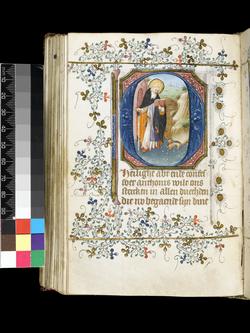 O heilighe abt ende confes
soer anthonis wilt ons
stercken in allen duechden
die nu begaende sijn dine